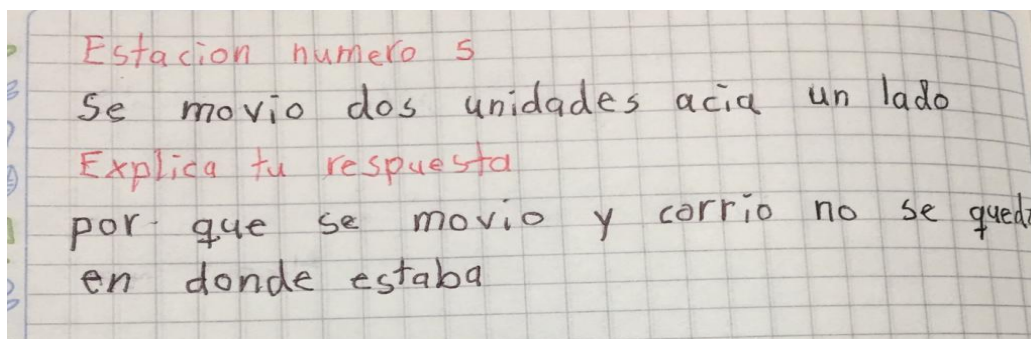 Estacion numero 5
Se movio dos unidades acia un lado
Explica tu respuesta
por que se movio y corrio no se queda
en donde estaba